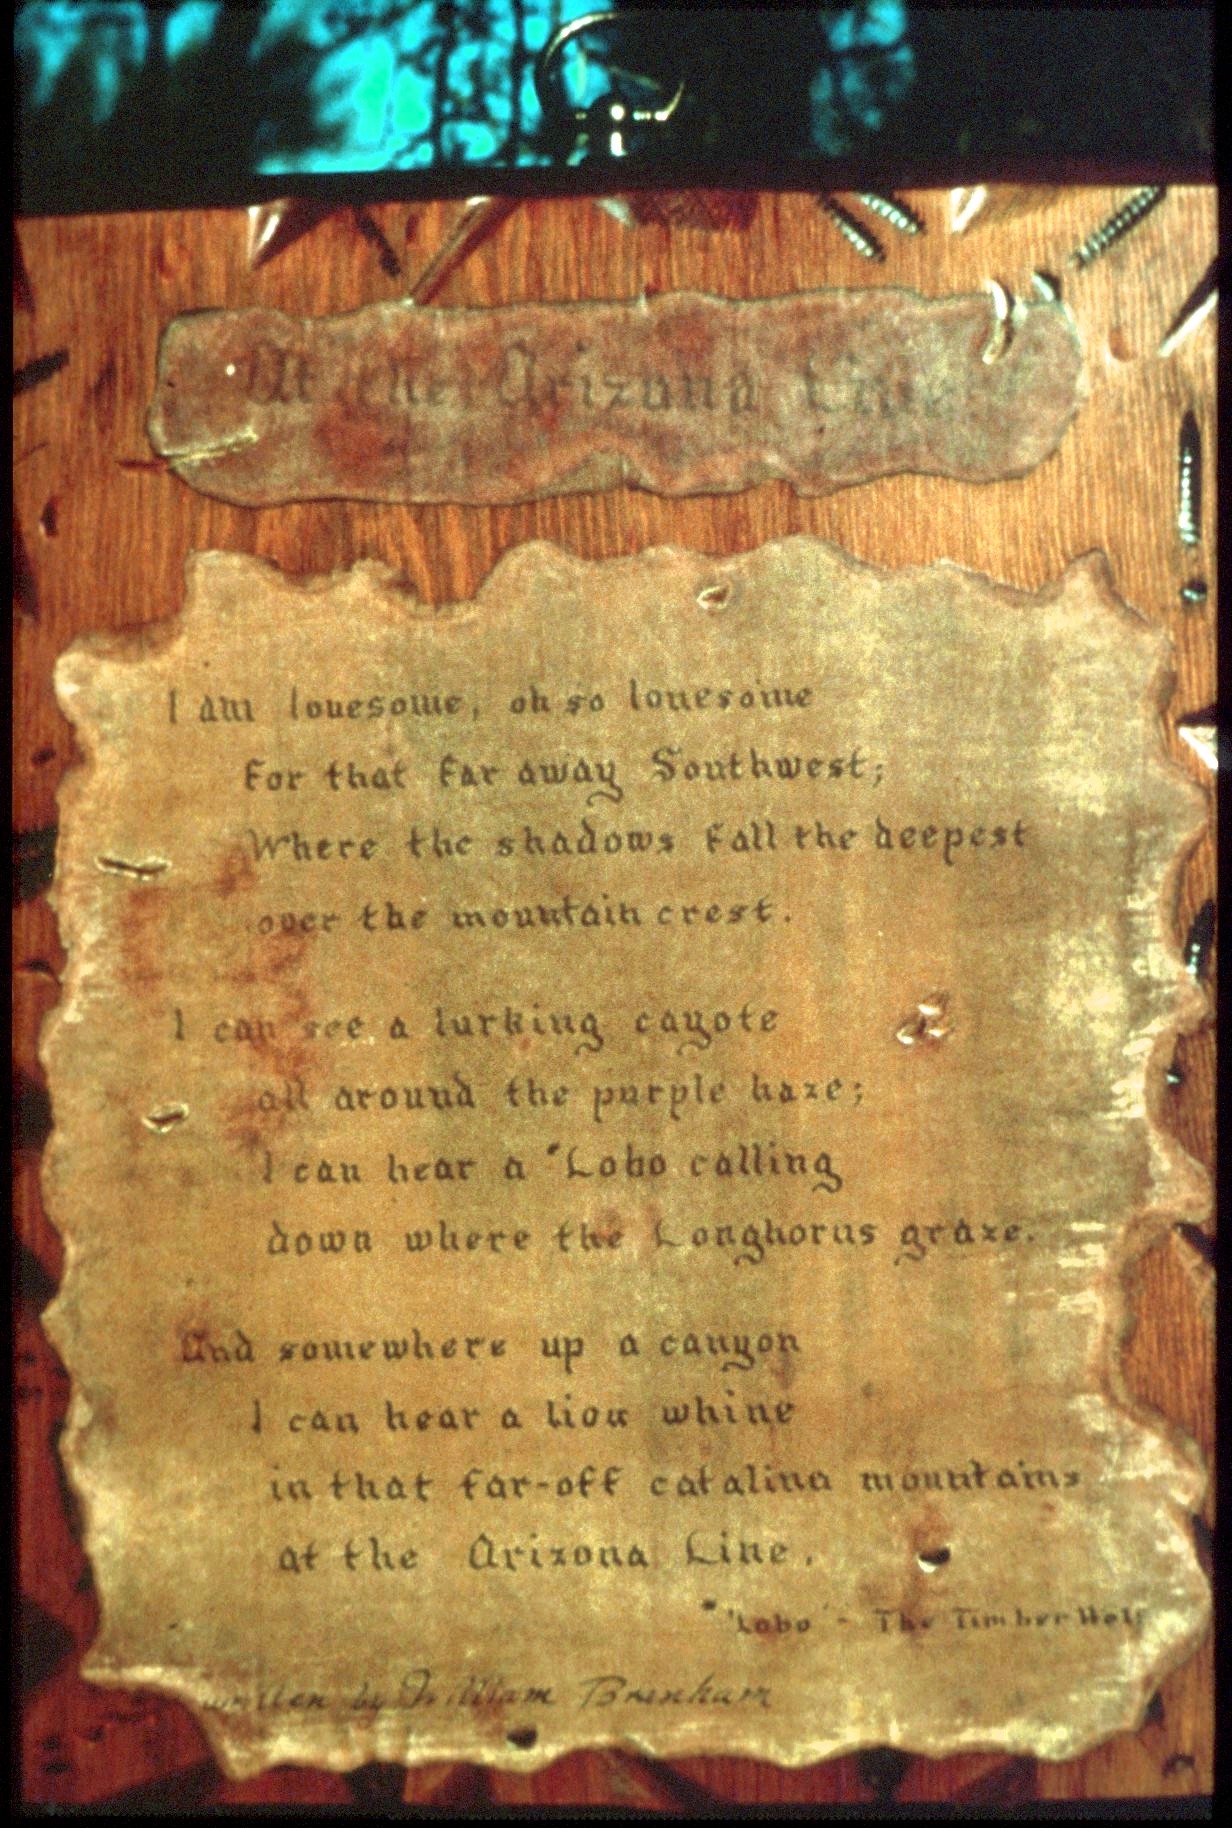 At the Arizona Line
I am lonesome, oh so lonesome
For that far away Southwest;
Where the shadows fall the deepest
over the mountain crest.
I can see a lurking cayote
all around the purple haze;
I can hear a *Lobo calling
down where the Longhorns graze.
And somewhere up a canyon
I can hear a lion whine
in that far-off catalina mountains
at the Arizona Line.
*"Lobo" - The Timber Wolf
written by William Brenham